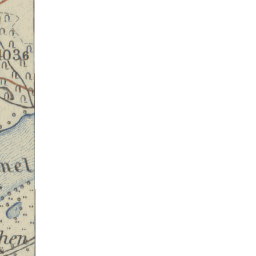 4036
nel
hen